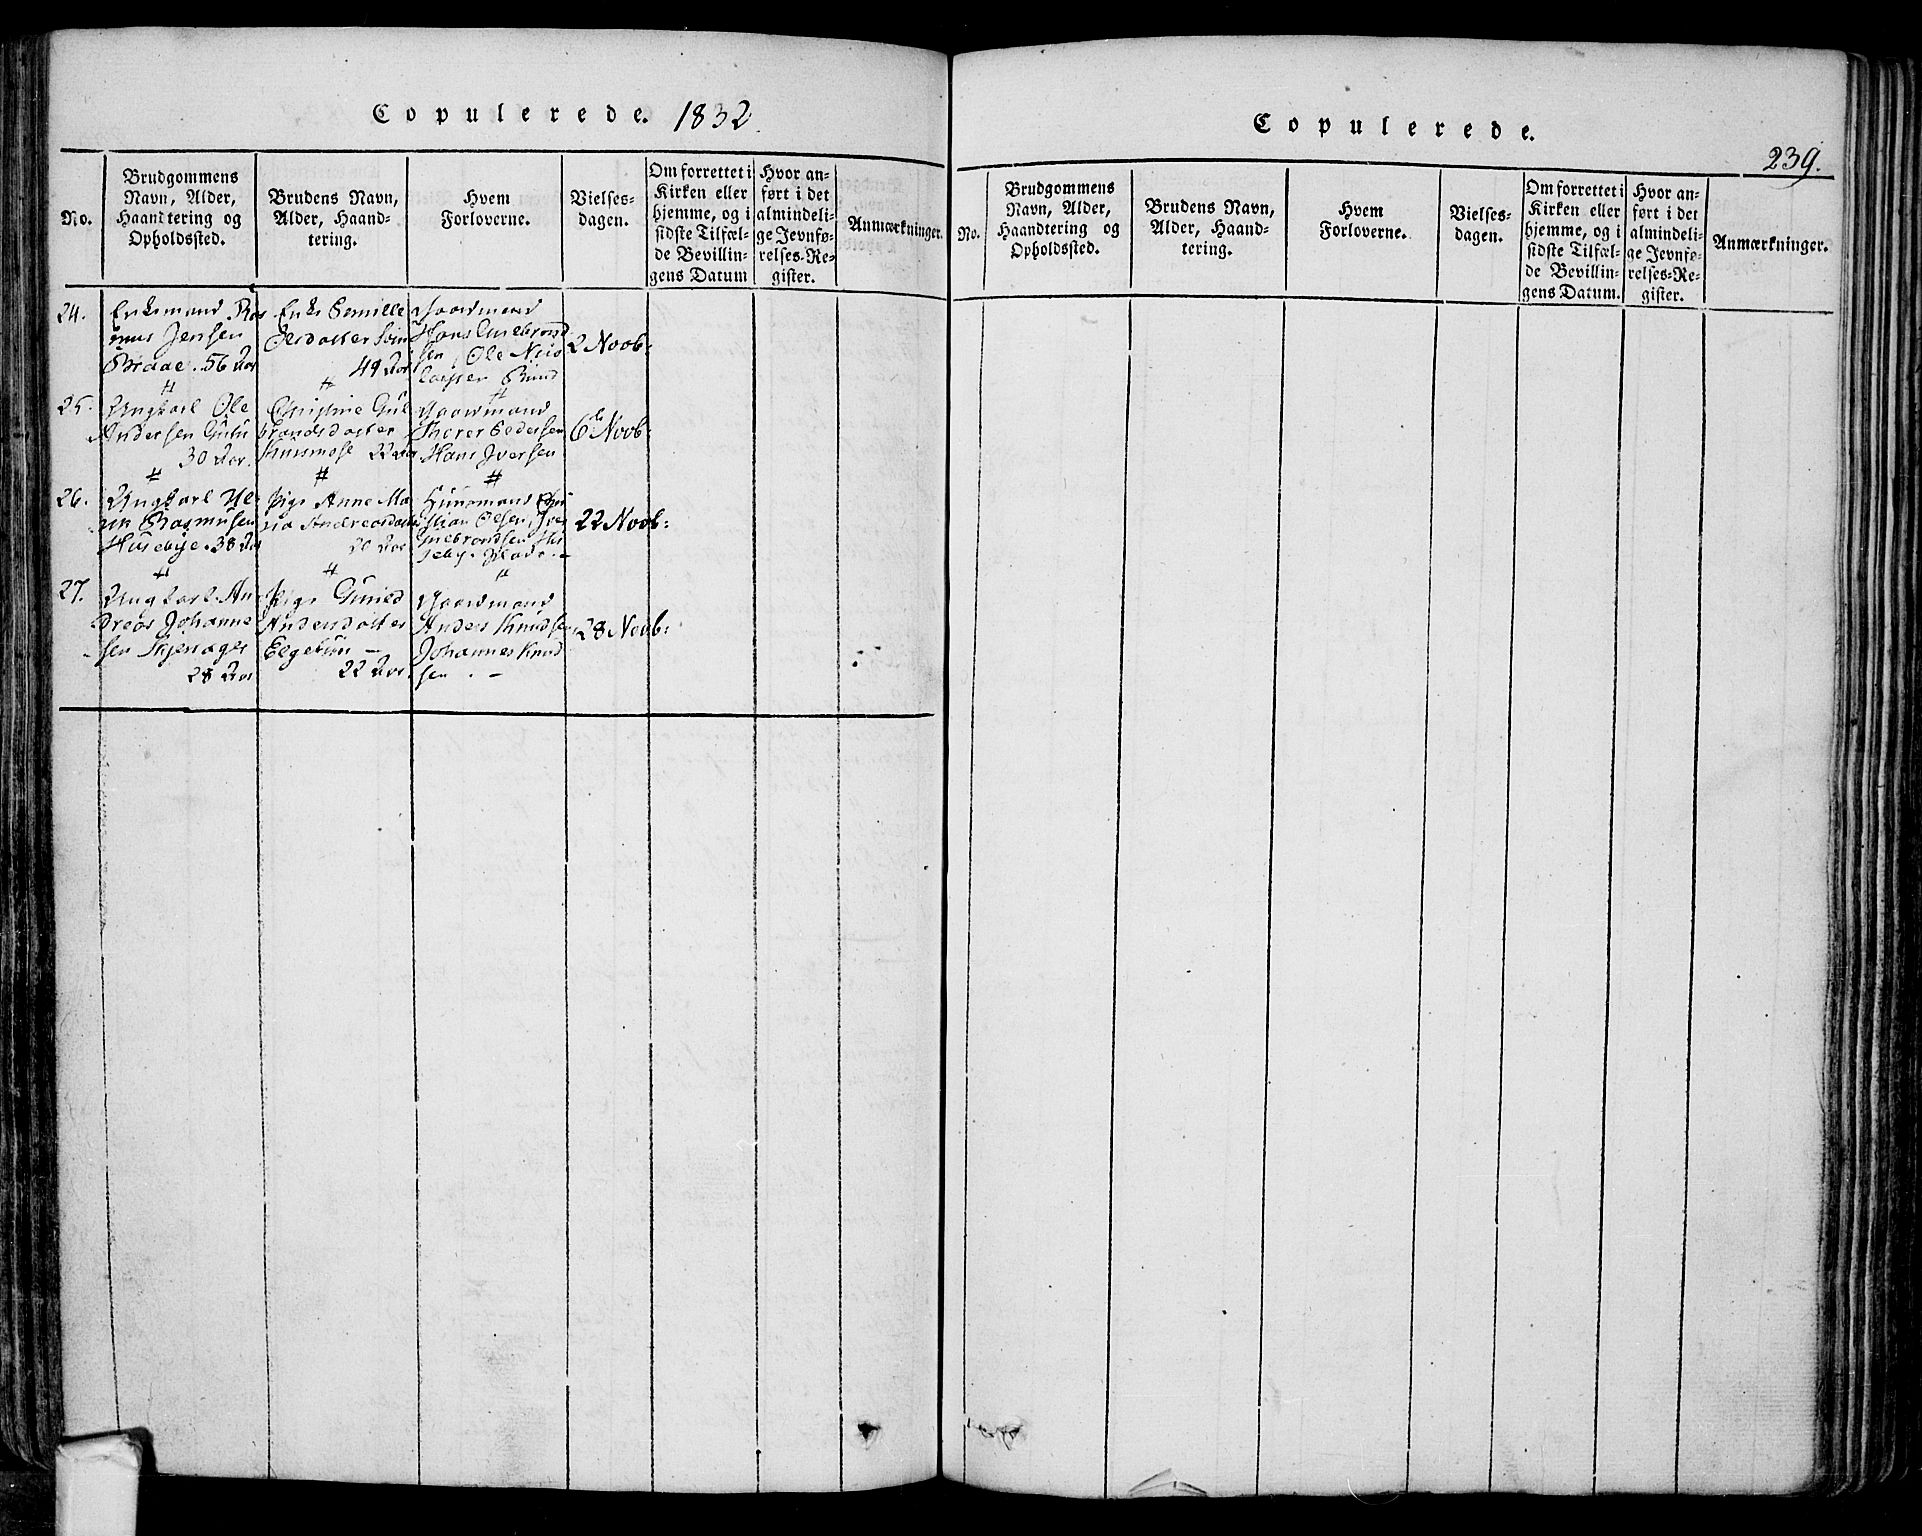 Copulerede. 1832.
No.
Brudgommens
Navn, Alder,
Haandtering og
Opholdssted.
Brudens Navn,
Alder, Haand-
tering.
Hvem
Forloverne.
Vielses-
dagen.
Om forrettet i
Kirken eller
hjemme, og i
sidste Tilfæl-
de Bevillin-
gens Datum
Hvor an-
ført i det
almindeli-
ge Jevnfø-
relses-Re-
gister.
Anmærkninger.
24.
Enkemand Ras
mus Jensen
Braae. 56 Aar
Enke Pernille
Olsdatter
49 Aar
Gaardmand
Hans Gulebrand
sen, Ole
2 Novb:
25.
Ungkarl Ole
Andersen
30 Aar.
Christine Gul
brandsdatter
Huusmose 22 Aar
Gaardmand
Thorer Pedersen
Hans Iversen
6te Novb:
26.
Ungkarl
Rasmusen
Husebye. 38 Aar
Pige Anne Ma
ria Andreasdatter
20 Aar
Huusmand Chri
stian Olsen, Iver
Gulebrandsen Hu
seby.
22 Novb:
27.
Ungkarl An
dreas Johanne
sen Skjenager
28 Aar
Pige Gunild
Andersdatter
Elgetun –
22 Aar.
Gaardmand
Anders Knudsen,
Johannes Knud
sen. –
28 Novb:
Copulerede.
239.
No.
Brudgommens
Navn, Alder,
Haandtering og
Opholdssted.
Brudens Navn,
Alder, Haand-
tering.
Hvem
Forloverne.
Vielses-
dagen.
Om forrettet i
Kirken eller
hjemme, og i
sidste Tilfæl-
de Bevillin-
gens Datum.
Hvor an-
ført i det
almindeli-
ge Jevnfø-
relses-Re-
gister.
Anmærkninger.